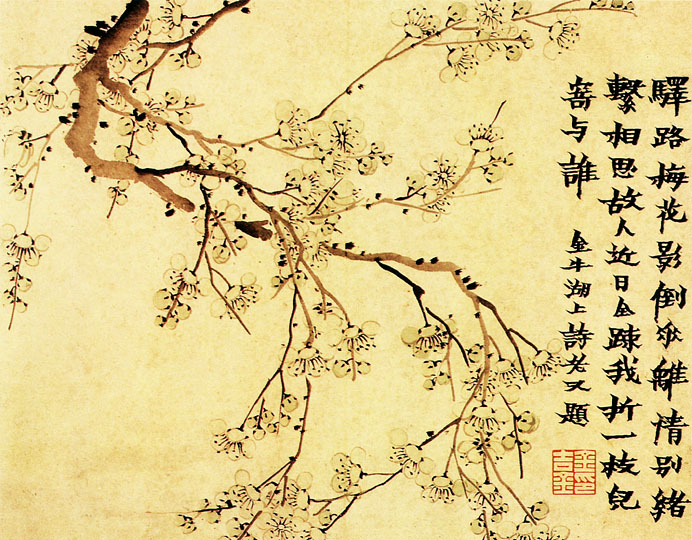 驛路梅花影倒垂離情别緒
繫相思故人近日全踈我折一枝兒
寄与誰
金牛湖上詩老又題